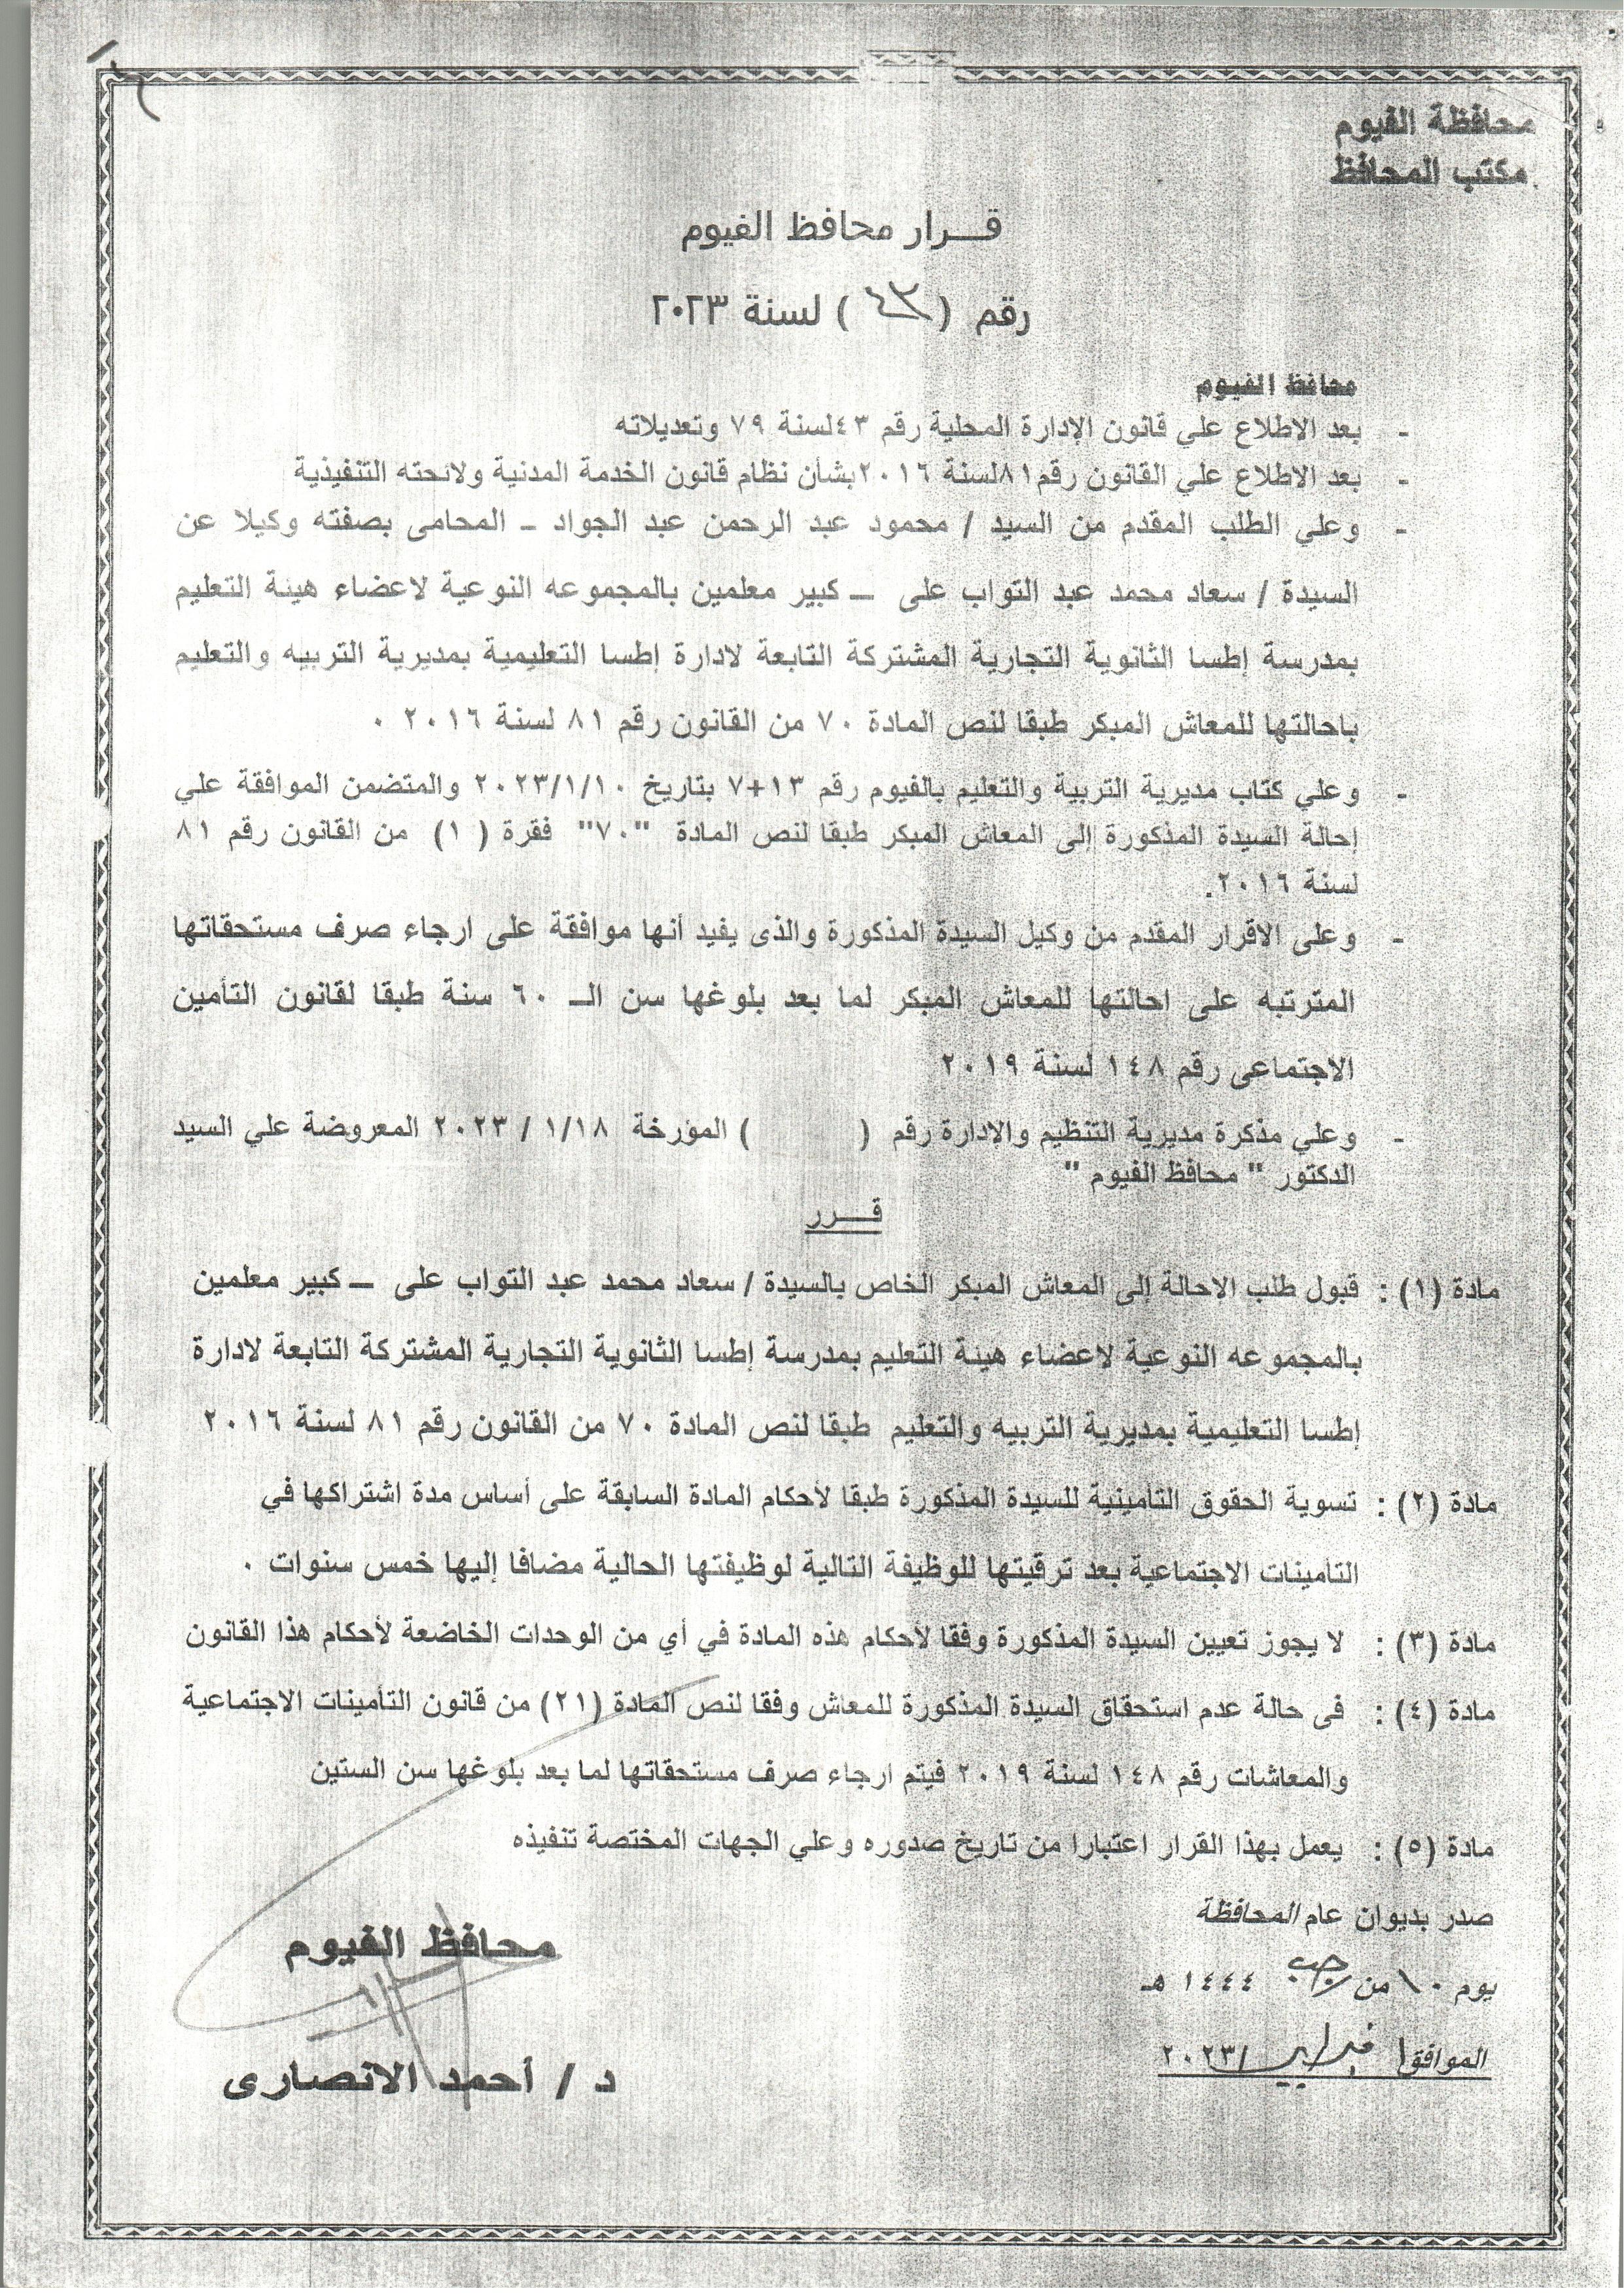 محافظة الفيوم
مكتب المحافظ
قـــرار محافظ الفيوم
رقم ( ٤٣ ) لسنة ٢٠٢٣
محافظ الفيوم
- بعد الاطلاع علي قانون الإدارة المحلية رقم ٤٣لسنة ٧٩ وتعديلاته
- بعد الاطلاع علي القانون رقم٨١لسنة ٢٠١٦بشأن نظام قانون الخدمة المدنية ولائحته التنفيذية
- وعلي الطلب المقدم من السيد / محمود عبد الرحمن عبد الجواد – المحامى بصفته وكيلا عن
السيدة / سعاد محمد عبد التواب على – كبير معلمين بالمجموعه النوعية لاعضاء هيئة التعليم
بمدرسة إطسا الثانوية التجارية المشتركة التابعة لادارة إطسا التعليمية بمديرية التربيه والتعليم
باحالتها للمعاش المبكر طبقا لنص المادة ٧٠ من القانون رقم ٨١ لسنة ٢٠١٦ .
- وعلي كتاب مديرية التربية والتعليم بالفيوم رقم ١٣+٧ بتاريخ ٢٠٢٣/١/١٠ والمتضمن الموافقة علي
إحالة السيدة المذكورة إلى المعاش المبكر طبقا لنص المادة "٧٠" فقرة ( ١) من القانون رقم ٨١
لسنة ٢٠١٦.
- وعلى الاقرار المقدم من وكيل السيدة المذكورة والذى يفيد أنها موافقة على ارجاء صرف مستحقاتها
المترتبه على احالتها للمعاش المبكر لما بعد بلوغها سن الـ ٦٠ سنة طبقا لقانون التأمين
الاجتماعى رقم ١٤٨ لسنة ٢٠١٩
- وعلي مذكرة مديرية التنظيم والإدارة رقم ( ) المؤرخة ١/١٨ / ٢٠٢٣ المعروضة علي السيد
الدكتور " محافظ الفيوم "
قـــرر
مادة (١) : قبول طلب الاحالة إلى المعاش المبكر الخاص بالسيدة / سعاد محمد عبد التواب على – كبير معلمين
بالمجموعه النوعية لاعضاء هيئة التعليم بمدرسة إطسا الثانوية التجارية المشتركة التابعة لادارة
إطسا التعليمية بمديرية التربيه والتعليم طبقا لنص المادة ٧٠ من القانون رقم ٨١ لسنة ٢٠١٦
مادة (٢) : تسوية الحقوق التأمينية للسيدة المذكورة طبقا لأحكام المادة السابقة على أساس مدة اشتراكها في
التأمينات الاجتماعية بعد ترقيتها للوظيفة التالية لوظيفتها الحالية مضافا إليها خمس سنوات .
مادة (٣) : لا يجوز تعيين السيدة المذكورة وفقا لأحكام هذه المادة في أي من الوحدات الخاضعة لأحكام هذا القانون
مادة (٤) : فى حالة عدم استحقاق السيدة المذكورة للمعاش وفقا لنص المادة (٢١) من قانون التأمينات الاجتماعية
والمعاشات رقم ١٤٨ لسنة ٢٠١٩ فيتم ارجاء صرف مستحقاتها لما بعد بلوغها سن الستين
مادة (٥) : يعمل بهذا القرار اعتبارا من تاريخ صدوره وعلي الجهات المختصة تنفيذه
صدر بديوان عام المحافظة
يوم ١٠ من رجب ١٤٤٤ هـ
الموافق١ فبراير /٢٠٢٣
محافظ الفيوم
د / أحمد الانصارى